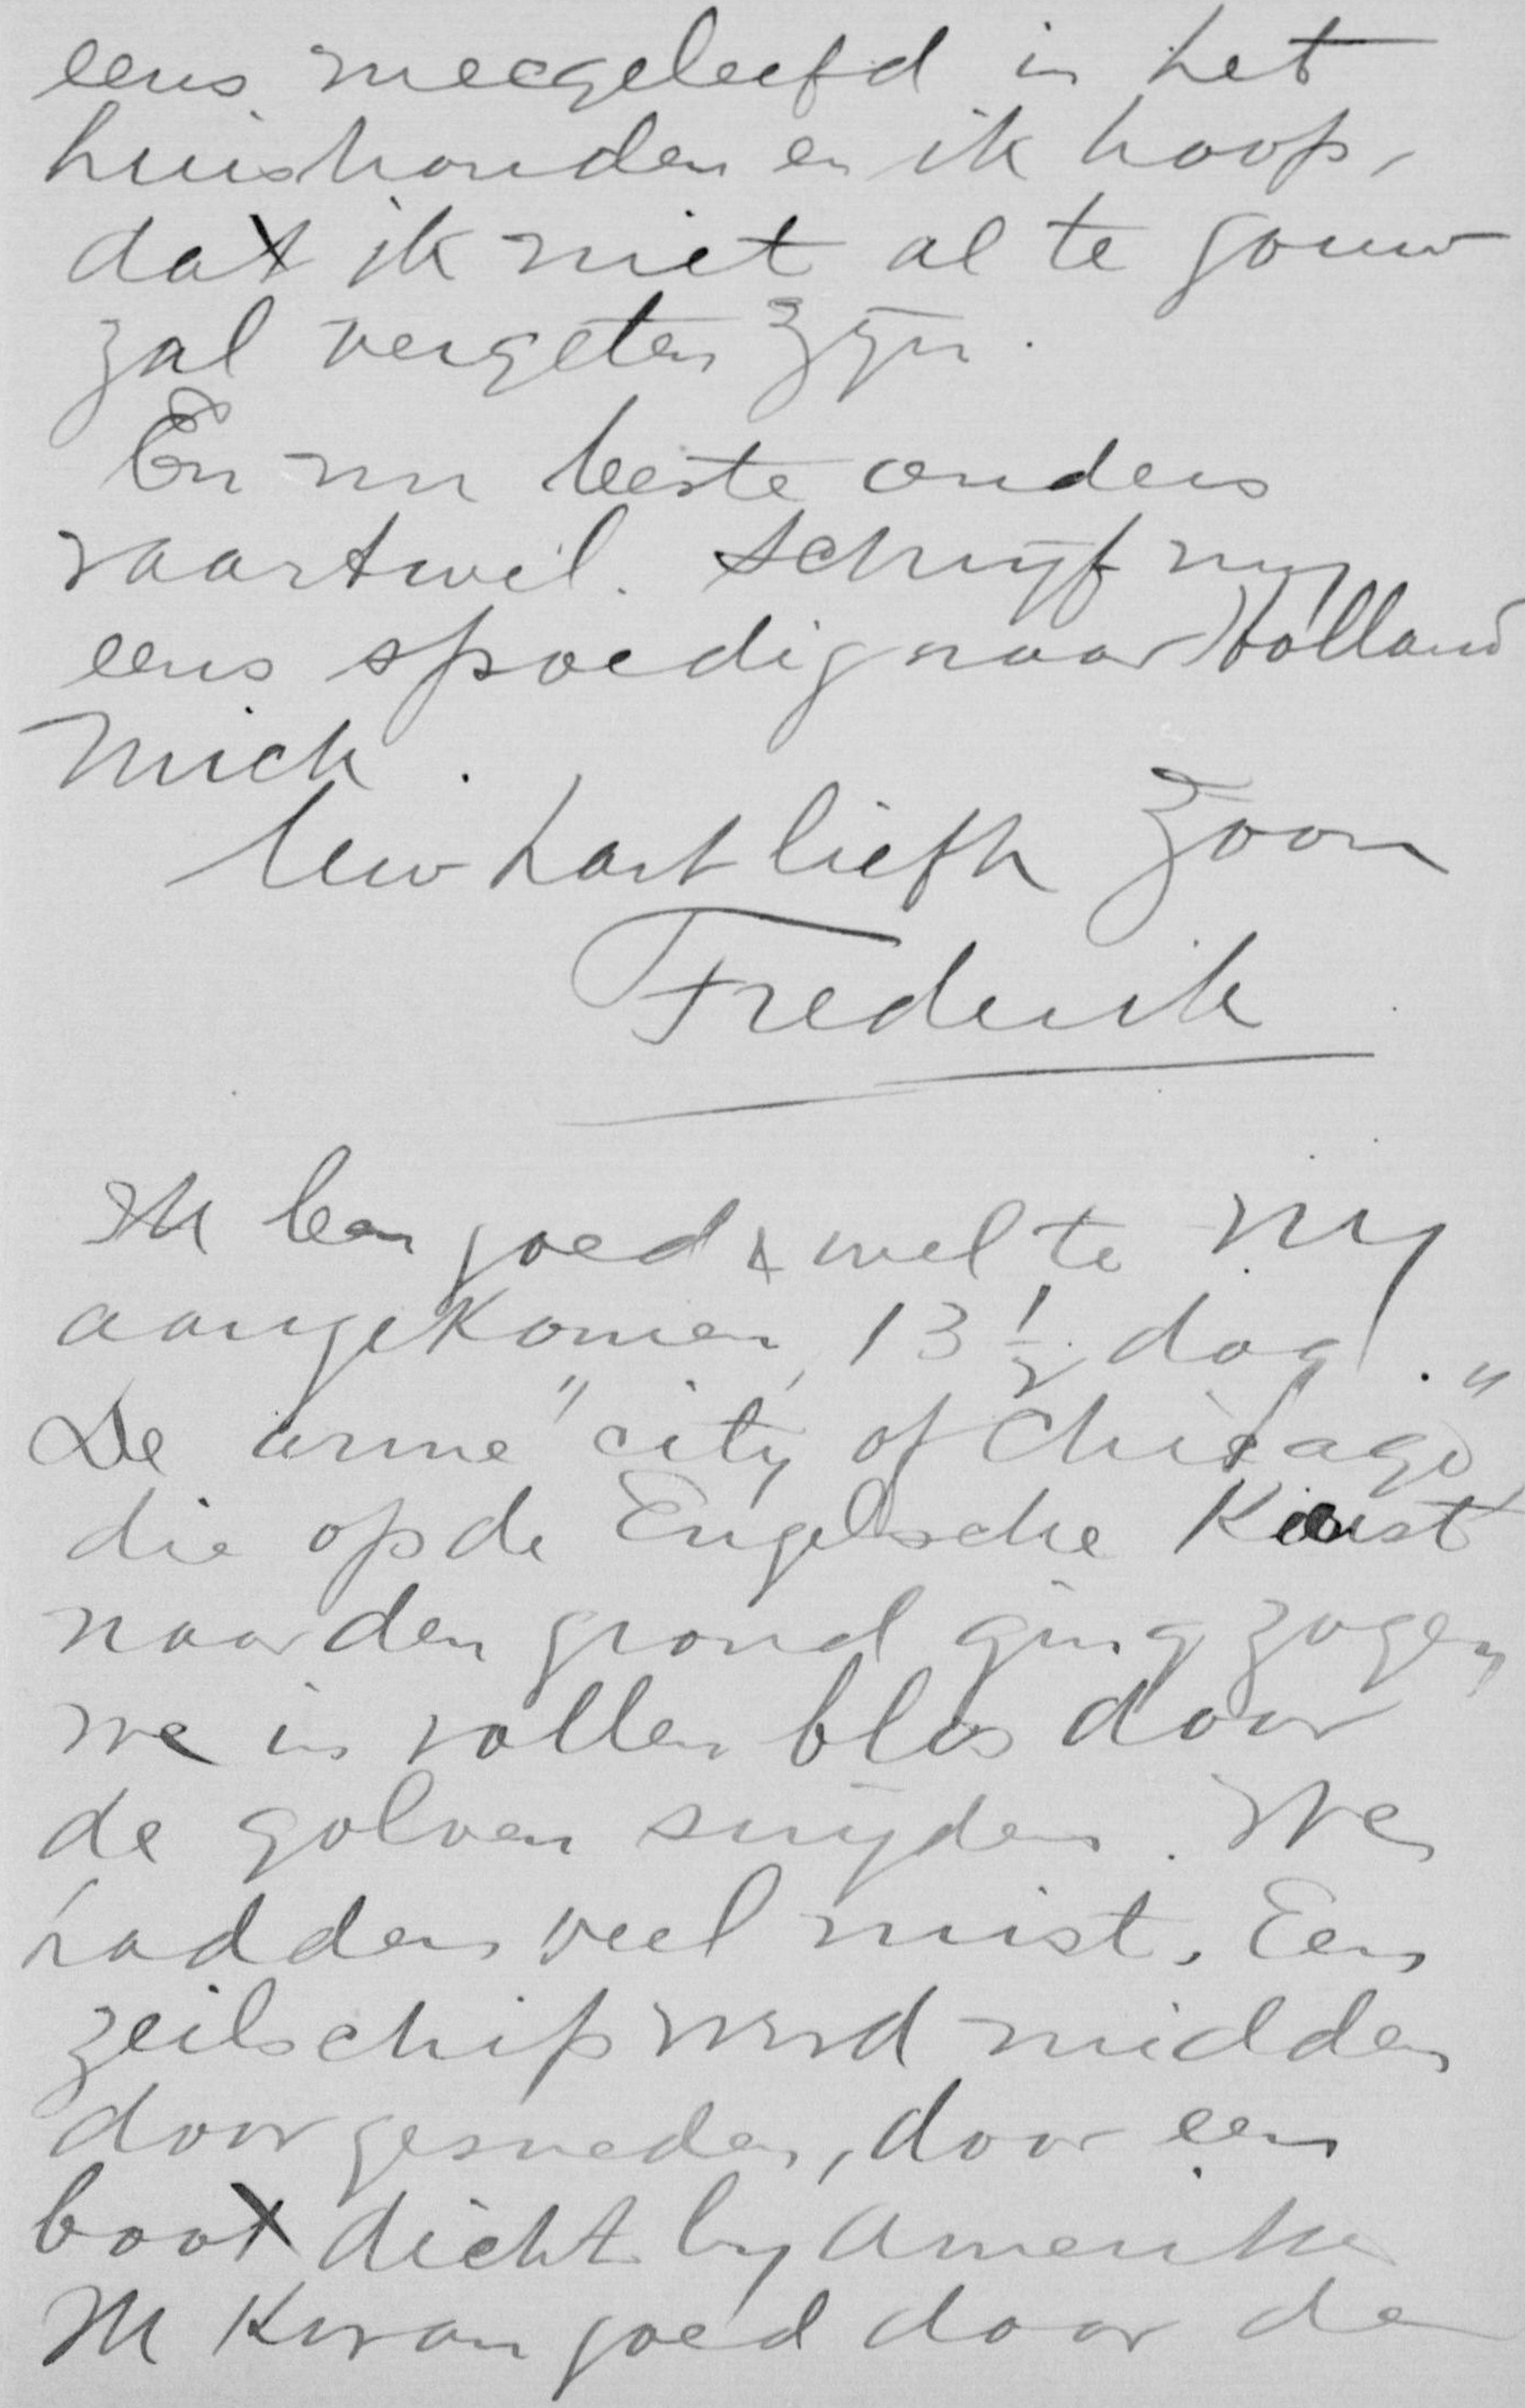 eens meegeleefd in het
huishouden en ik hoop,
dat ik niet al te gouw
zal vergeten zijn.
En nu beste ouders
vaartwel. Schrijf mij
eens spoedig naar Holland
Mich.
Uw hartliefh Zoon
Frederik
Ik ben goed & wel te NY
aangekomen, 13 1/2 dag.
De arme "city of Chicago"
die op de Engelsche Kust
naar den grond ging zagen
we in vollen blos door
de golven snijden. We
hadden veel mist. Een
zeilschip werd midden
door gesneden, door een
boot dicht by Amerika
Ik kwam goed door de